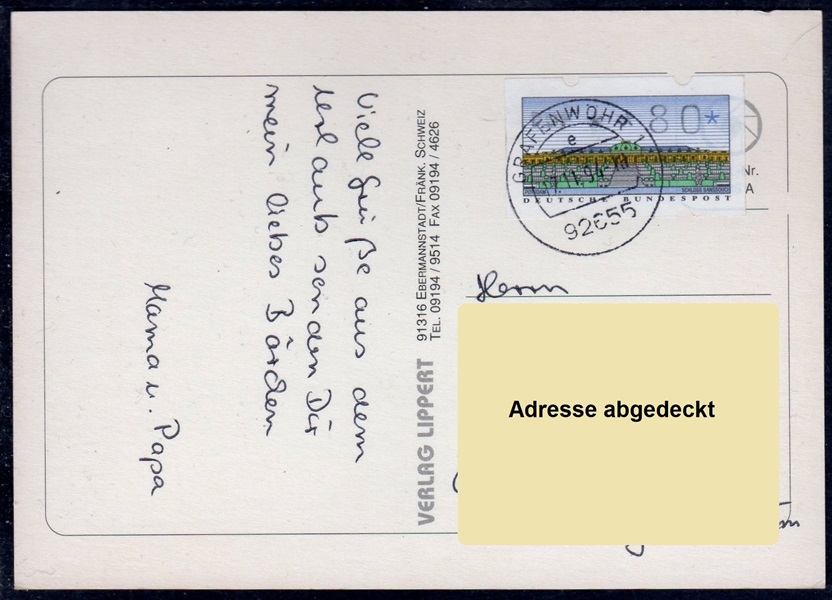 Viele Grüße aus dem
Urlaub senden Dir
mein liebes Bärchen
Mama u. Papa
VERLAG LIPPERT
91316 EBERMANNSTADT/FRÄNK. SCHWEIZ
TEL. 09194 / 9514 FAX 09194 / 4626
80*
GRAFENWÖHR 1
e
92655
SCHLOSS SANSSOUCI
DEUTSCHE BUNDESPOST
Nr.
A
Herrn
Adresse abgedeckt